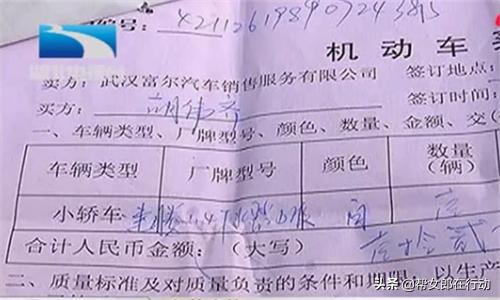 编号：421126198907243815
机动车
卖方：武汉富尔汽车销售服务有限公司 签订地点：
买方： 签订时间：
一、车辆类型、厂牌型号、颜色、数量、金额、交
车辆类型 厂牌型号 颜色 数量（辆）
小轿车 1.4T 白 壹
合计人民币金额：（大写） 壹拾贰
二、质量标准及对质量负责的条件和期限：以生产
头条 @帮女郎在行动